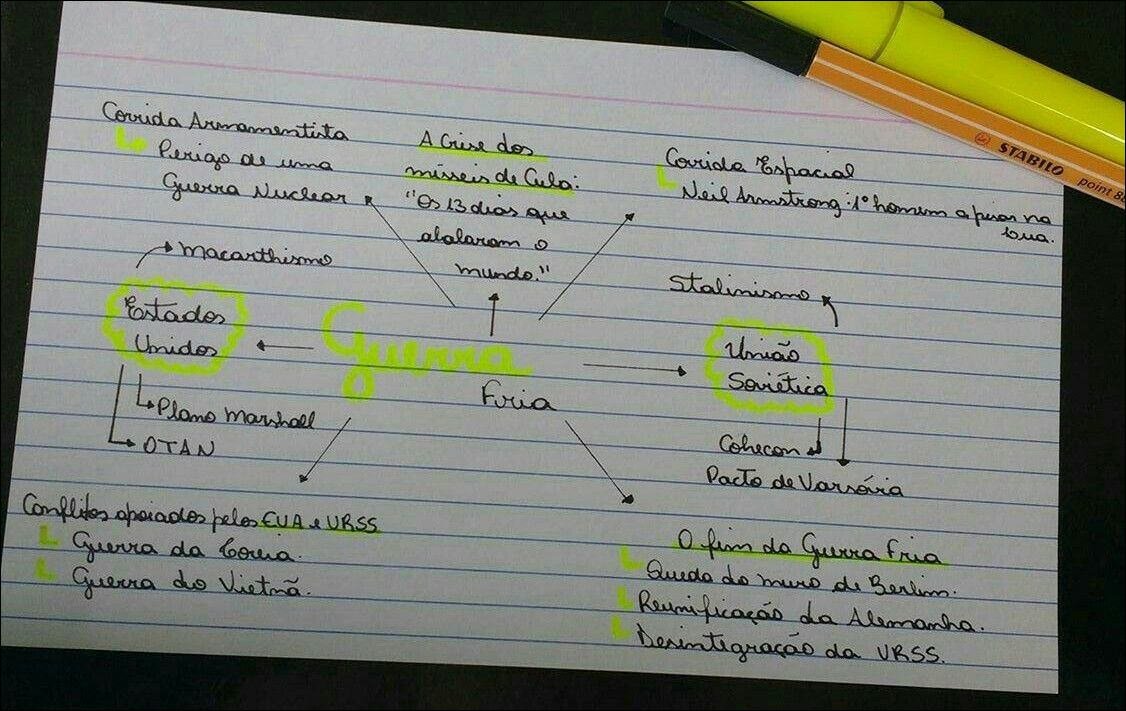 Corrida Armamentista
Perigo de uma
Guerra Nuclear
A Crise dos
mísseis de Cuba:
"Os 13 dias que
abalaram o
mundo."
Corrida Espacial
Neil Armstrong: 1º homem a pisar na
lua.
STABILO
point 88
Macarthismo
Estados
Unidos
Plano Marshall
OTAN
Guerra
Fria
Stalinismo
União
Soviética
Cohecon
Pacto de Varsóvia
Conflitos apoiados pelos EUA e URSS
Guerra da Coreia.
Guerra do Vietnã.
O fim da Guerra Fria
Queda do muro de Berlim.
Reunificação da Alemanha.
Desintegração da URSS.